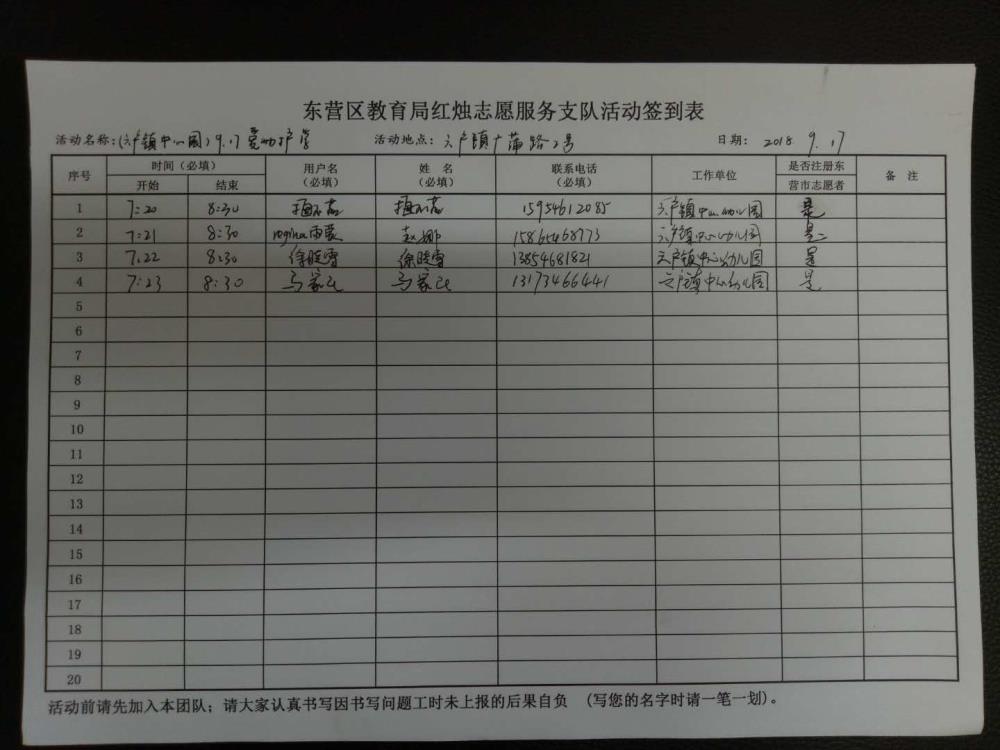 东营区教育局红烛志愿服务支队活动签到表
活动名称:(六户镇中心园)9.17爱心护学 活动地点:六户镇广蒲路2号 日期: 2018 9.17
序号 时间(必填) 用户名(必填) 姓 名(必填) 联系电话(必填) 工作单位 是否注册东营市志愿者 备 注
开始 结束
1 7:20 8:30 15954612085 六户镇中心幼儿园 是
2 7:21 8:30 regina雨蒙 赵娜 15865468773 六户镇中心幼儿园 是
3 7:22 8:30 徐晓雪 徐晓雪 13854681821 六户镇中心幼儿园 是
4 7:23 8:30 马家民 马家民 13173466441 六户镇中心幼儿园 是
5
6
7
8
9
10
11
12
13
14
15
16
17
18
19
20
活动前请先加入本团队;请大家认真书写因书写问题工时未上报的后果自负 (写您的名字时请一笔一划)。